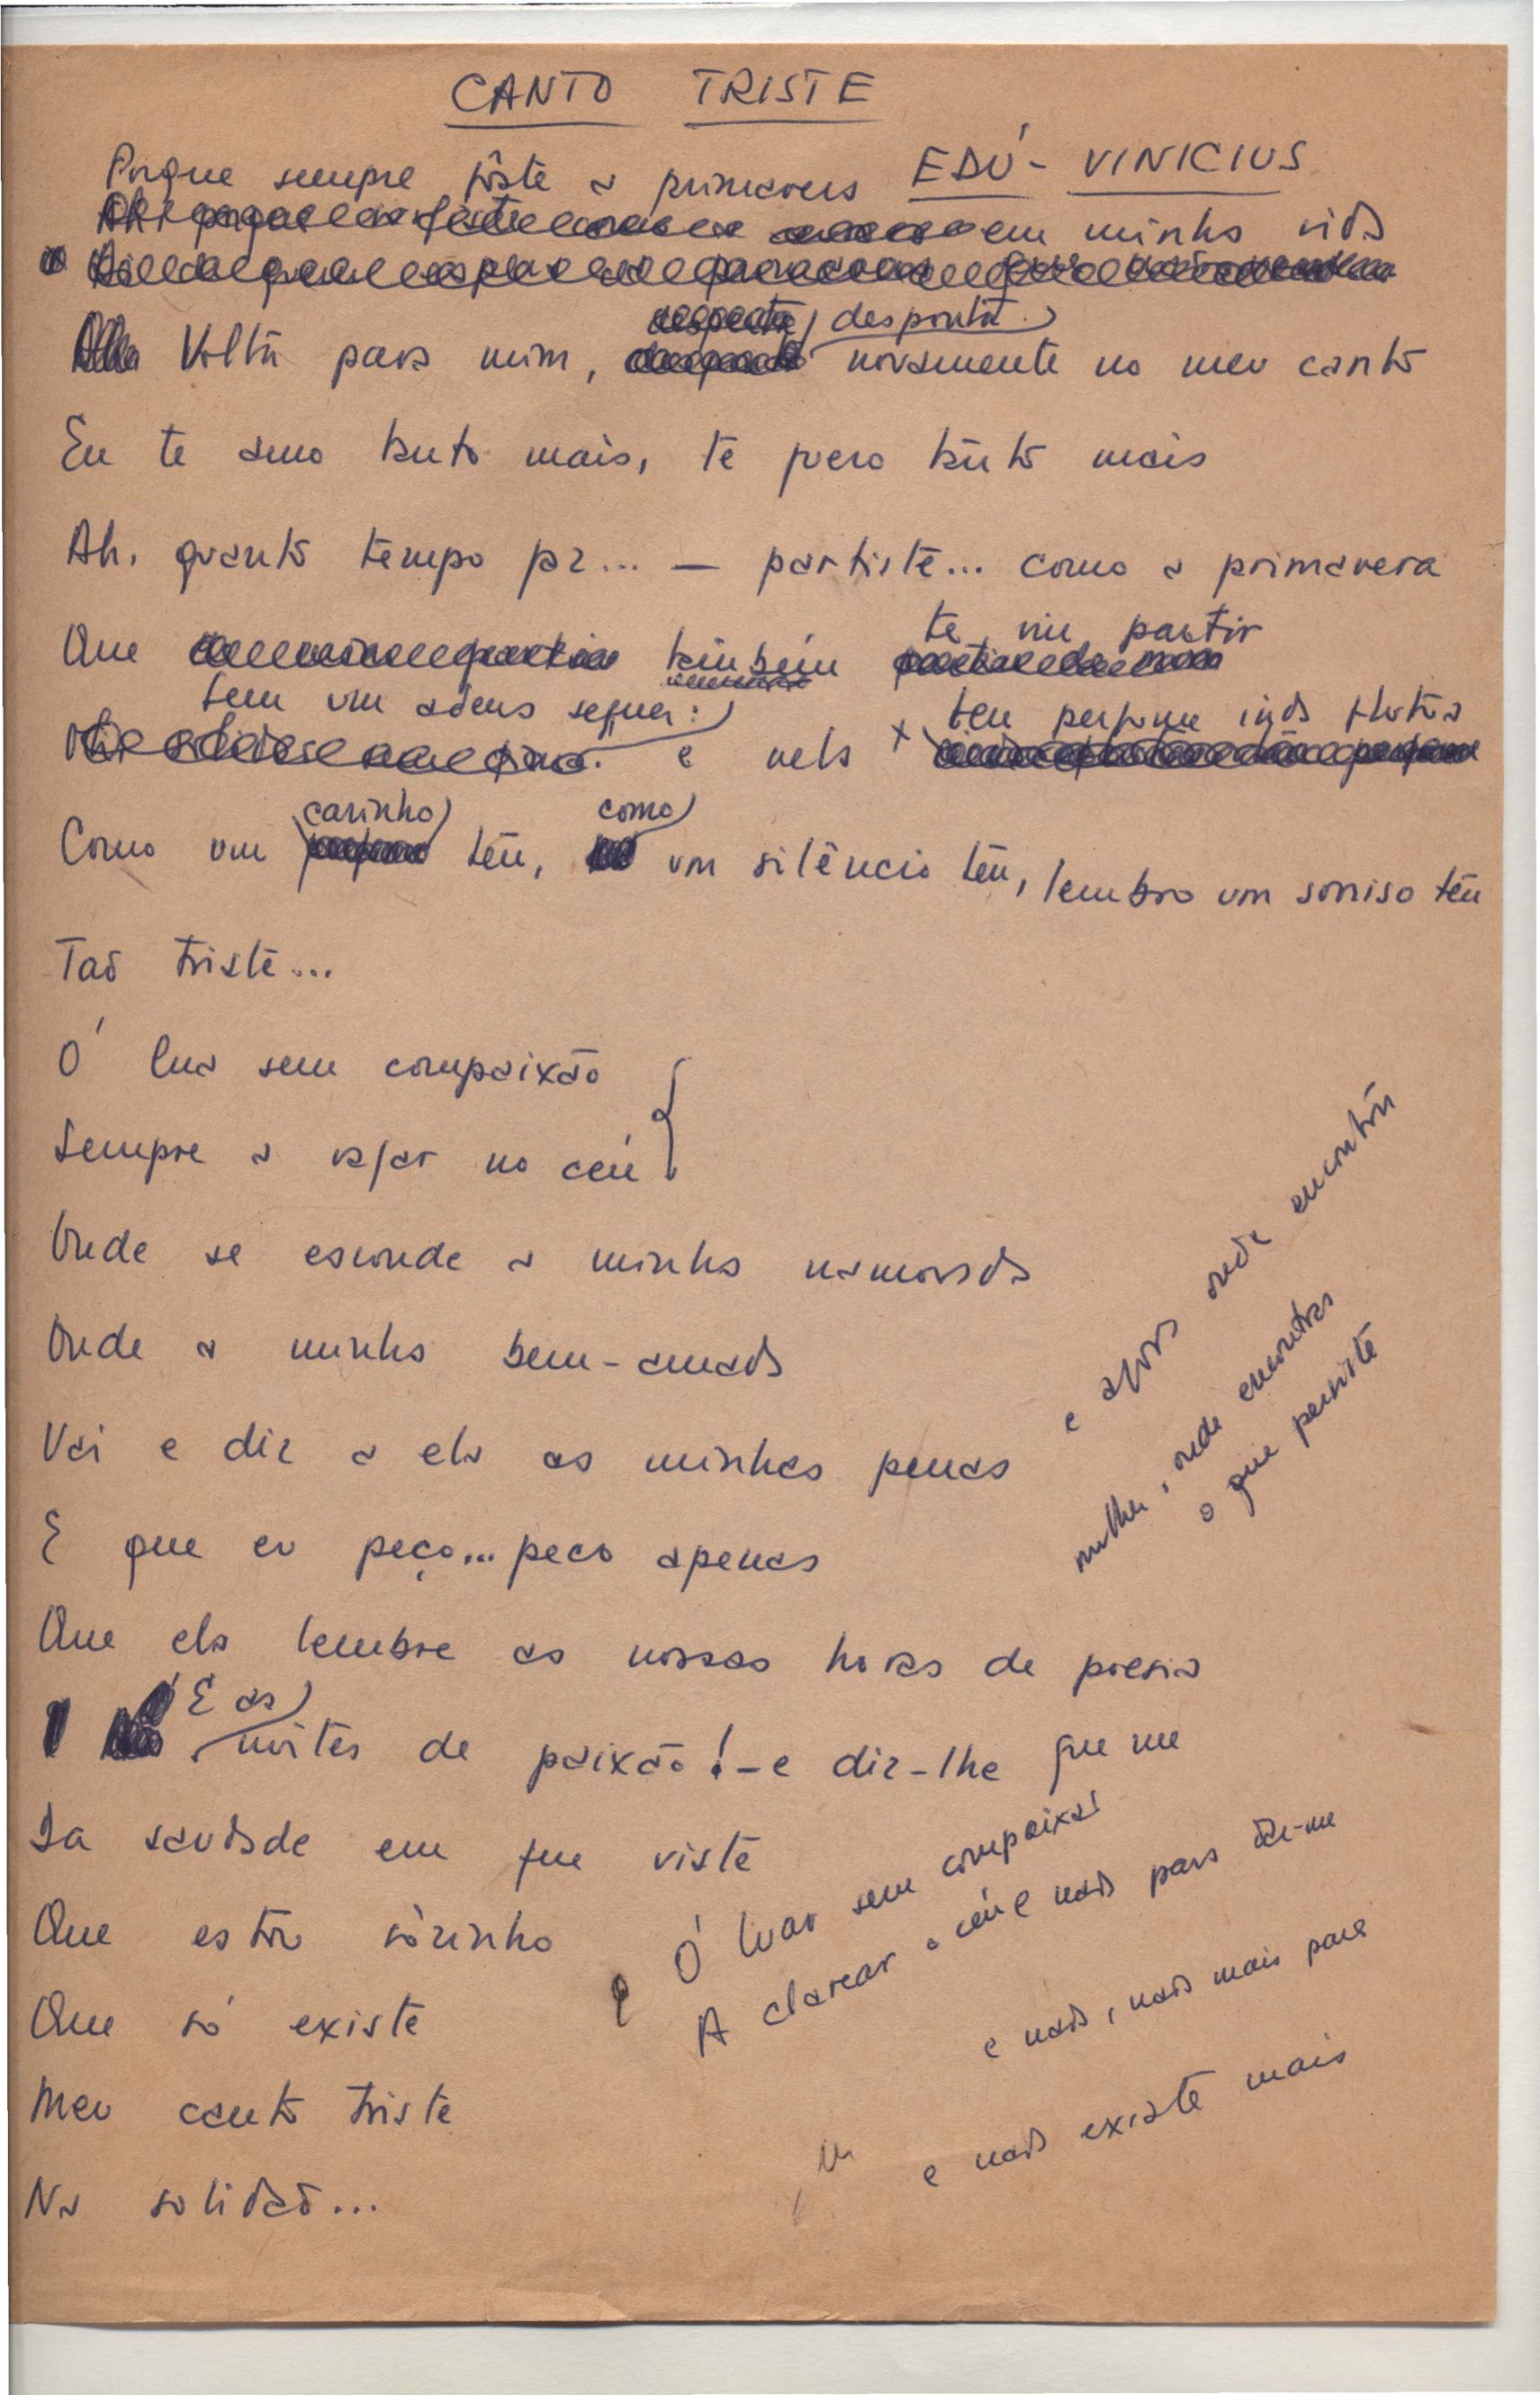 CANTO TRISTE
EDÚ - VINICIUS
Porque sempre fôste a primavera
em minha vida
despontа
Volta para mim, novamente no meu canto
Eu te amo tanto mais, te quero tanto mais
Ah, quanto tempo faz... — partiste... como a primavera
te viu partir
Que também
sem um adeus sequer:
teu perfume inda flutua
e nela
carinho como
Como um teu, um silêncio teu, lembro um sorriso teu
Tão triste...
Ó lua sem compaixão
Sempre a vagar no céu
Onde se esconde a minha namorada
Onde a minha bem-amada
Vai e diz a ela as minhas penas
E que eu peço... peço apenas
Que ela lembre as nossas horas de poesia
E as
noites de paixão! - e diz-lhe que me
Da saudade em que viste
Que estou sòzinho
Que só existe
Meu canto triste
Na solidão...
e agora onde encontrou
mulher, onde encontras
o que persiste
Ó luar sem compaixão
A clarear o céu e nada para dar-me
e nada, nada mais para
e nada existe mais